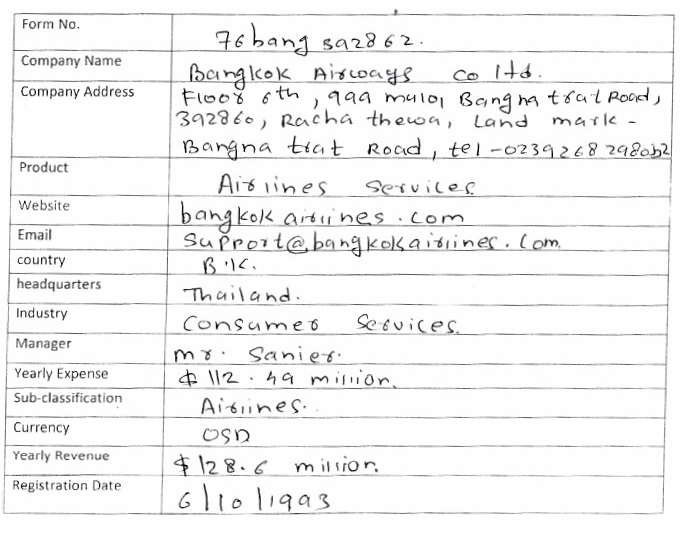 Form No. 76bang 392862.
Company Name Bangkok Airways co ltd.
Company Address Floor 6th, 999 mulo1 Bangna trat Road,
392860, Racha thewa, Land mark -
Bangna trat Road, tel-0239268298052
Product Airlines Services
Website bangkokairlines.com
Email Support@bangkokairlines.com
country B.K.
headquarters Thailand.
Industry Consumer Services.
Manager mr. Sanier.
Yearly Expense $ 112.49 million.
Sub-classification Airlines.
Currency USD
Yearly Revenue $128.6 million.
Registration Date 6/10/1993